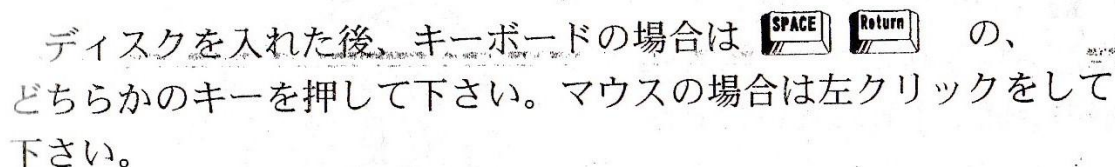 ディスクを入れた後、キーボードの場合は SPACE Return の、
どちらかのキーを押して下さい。マウスの場合は左クリックをして
下さい。